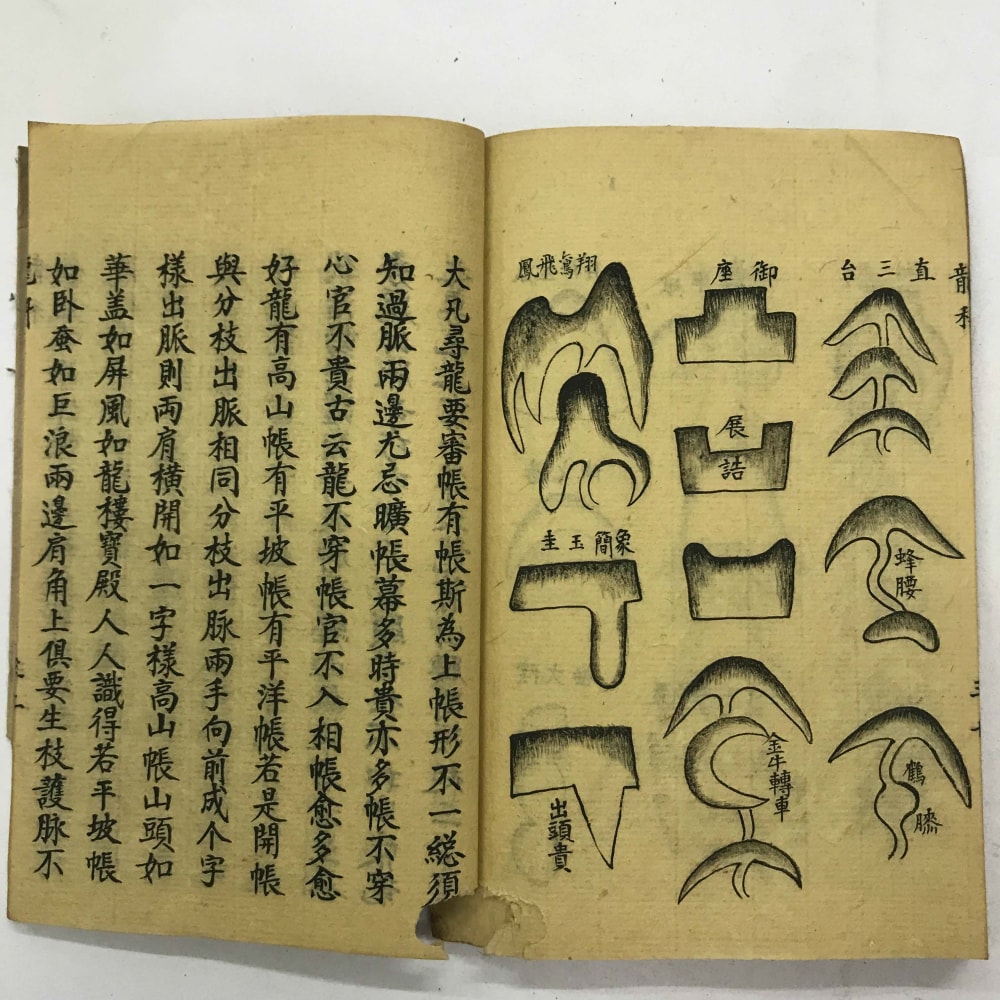 直三台
蜂腰
鶴膝
御座
展誥
金牛轉車
翔鸞飛鳳
象簡玉圭
出頭貴
大凡尋龍要審帳有帳斯為上帳形不一総須
知過脈兩邊尤忌曠帳幕多時貴亦多帳不穿
心官不貴古云龍不穿帳官不入相帳愈多愈
好龍有高山帳有平坡帳有平洋帳若是開帳
與分枝出脈相同分枝出脉兩手向前成个字
樣出脈則両肩橫開如一字樣高山帳山頭如
華盖如屏風如龍樓寶殿人人識得若平坡帳
如卧蚕如巨浪兩邊肩角上俱要生枝護脈不